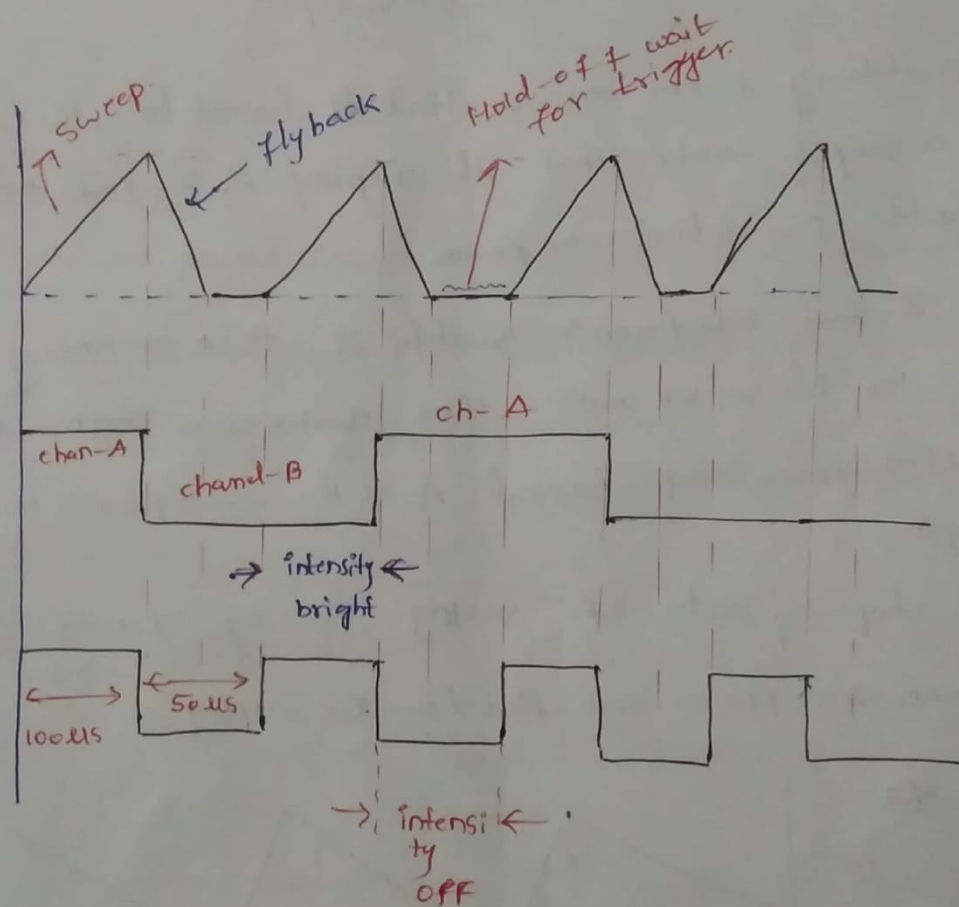 sweep.
flyback
Hold-off wait
for trigger.
chan-A
chanel-B
ch-A
intensity
bright
100µs
50µs
intensi
ty
OFF